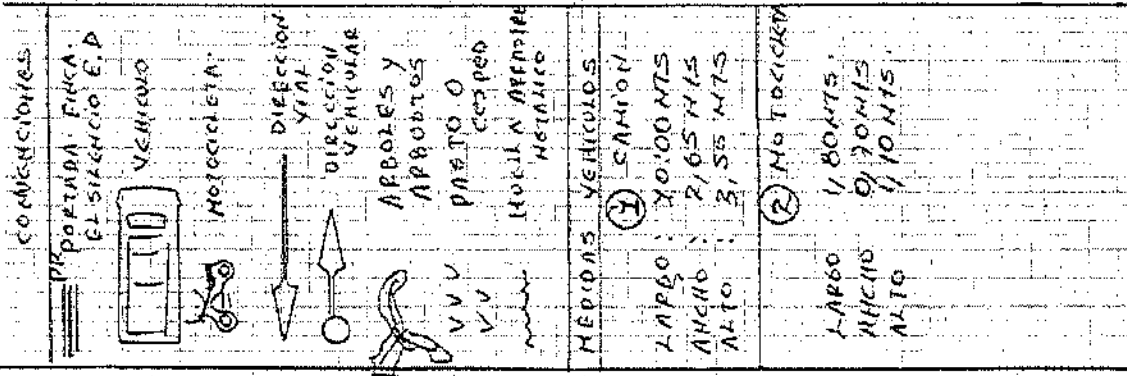 CONVENCIONES
PR PORTADA FINCA.
EL SILENCIO E.D
VEHICULO
MOTOCICLETA.
DIRECCION
VIAL
DIRECCION
VEHICULAR
ARBOLES Y
ARBUSTOS
PASTO O
CESPED
HUELLA ARRASTRE
METALICO
MEDIDAS VEHICULOS
① CAMION
LARGO : 10:00 MTS
ANCHO : 2,65 MTS
ALTO : 3,55 MTS
② MOTOCICLETA
LARGO 1,80 MTS.
ANCHO 0,70 MTS
ALTO 1,10 MTS.